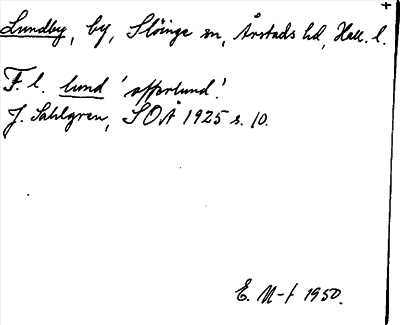 +
Lundby, by, Slöinge sn, Årstads hd, Hall. l.
F. l. lund 'offerlund'.
J. Sahlgren, SOÅ 1925 s. 10.
E. N-t 1950.